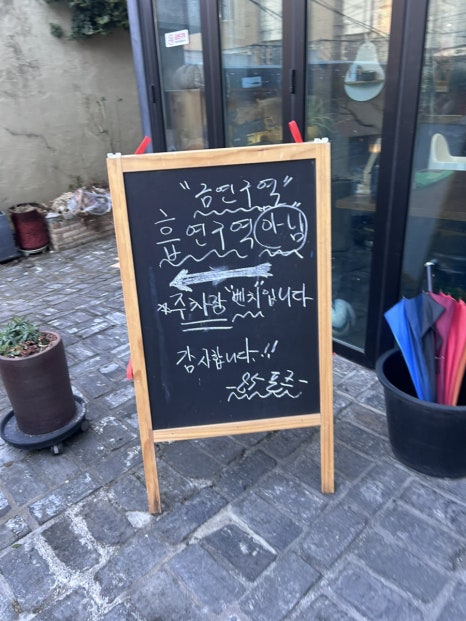 "금연구역"
흡연구역 아님
←
※주차장 "벤치"입니다
감사합니다.!!
-85